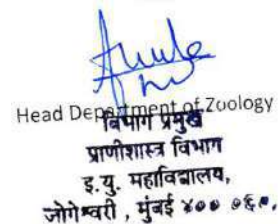 Head Department of Zoology
विभाग प्रमुख
प्राणीशास्त्र विभाग
इ. यु. महाविद्यालय,
जोगेश्वरी, मुंबई ४०० ०६०.